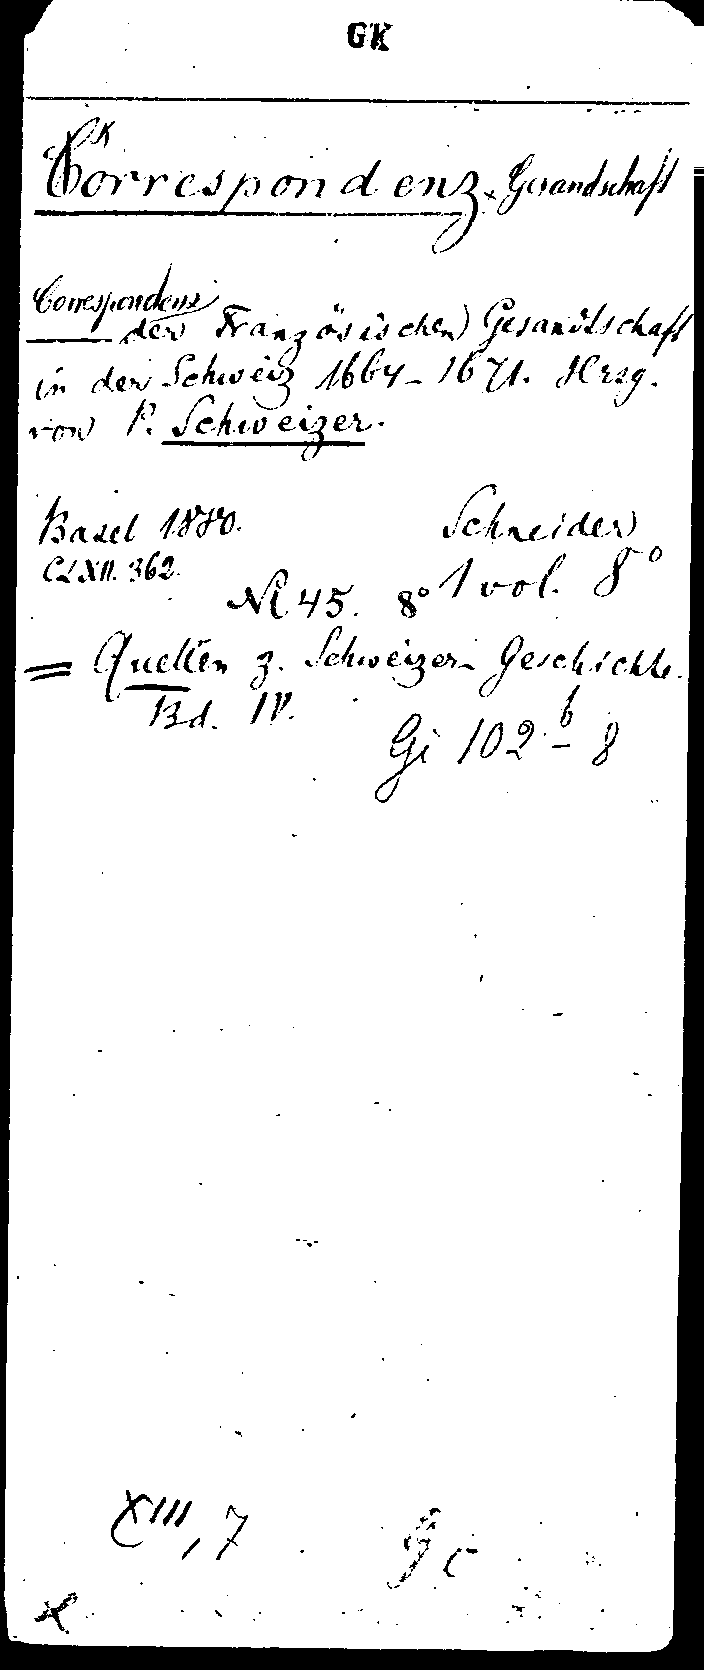 GK
Correspondenz, Gesandschaft
Correspondenz
der Französischen Gesandtschaft
in der Schweiz 1664-1671. Hrsg.
von P. Schweizer.
Basel 1880. Schneider
CLXII. 362.
N 45. 8° 1 vol. 8°
= Quellen z. Schweizer- Geschichte.
Bd. IV.
Gi 102 b - 8
XIII, 7 Gc